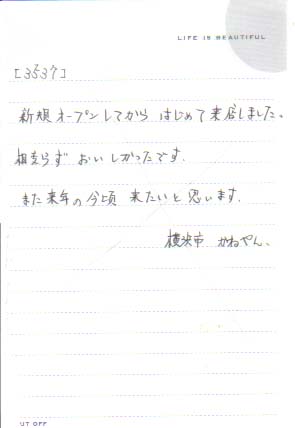 LIFE IS BEAUTIFUL
[3537]
新規オープンしてから はじめて来店しました。
相変らず おいしかったです.
また来年の今頃 来たいと思います.
横浜市 かねやん、
UT OFF